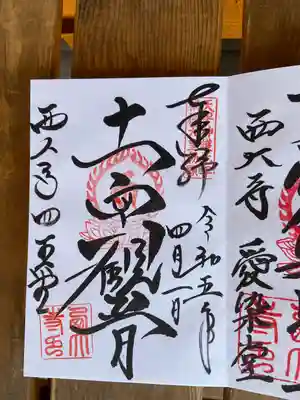 西大寺
愛染堂
奉拝
令和五年
四月一日
十一面観音
西大寺四王堂